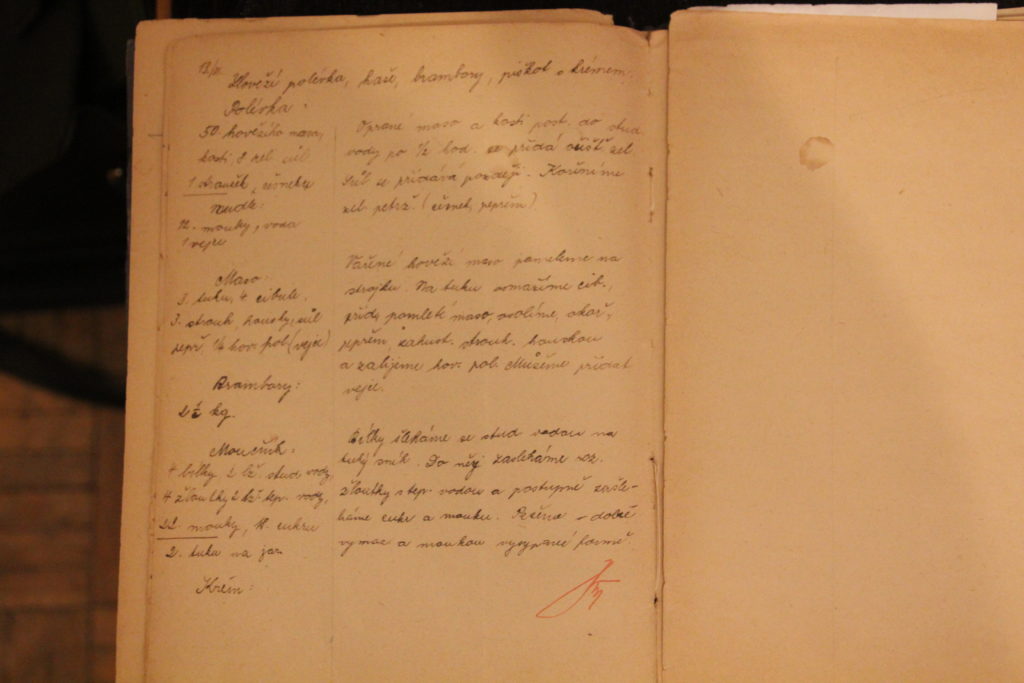 Hovězí polévka, kaše, brambory, piškot s krémem.
Polévka:
50 hovězího masa,
kosti, 8 zel. sůl
česneku
nudle:
12. mouky, voda
1 vejce
Oprané maso a kosti post. do stud.
vody po 1/2 hod. se přidá očišť zel.
Sůl se přidává později. Kořeníme
zel. petrž. (česnek, pepřem).
Maso:
3. tuku, 4 cibule,
3. strouh. housky, sůl
pepř, 1/4 hov. pol. (vejce)
Vařené hovězí maso pomeleme na
strojku. Na tuku osmažíme cib.,
přidá pomleté maso, osolíme, okoř.,
pepřem zahust. strouh. houskou
a zalijeme hov. pol. Můžeme přidat
vejce.
Brambory:
2 1/2 kg.
Moučník:
4 bílky 2 lž. stud. vody,
4 žloutky 2 lž. tep. vody,
22. mouky, cukru
2. tuku na
Bílky šleháme se stud vodou na
tuhý sníh. Do něj zašleháme roz.
žloutky s tep. vodou a postupně zašle-
háme cukr a mouku. Pečeme - dobře
vymaz a moukou vysypané formě.
Krém: